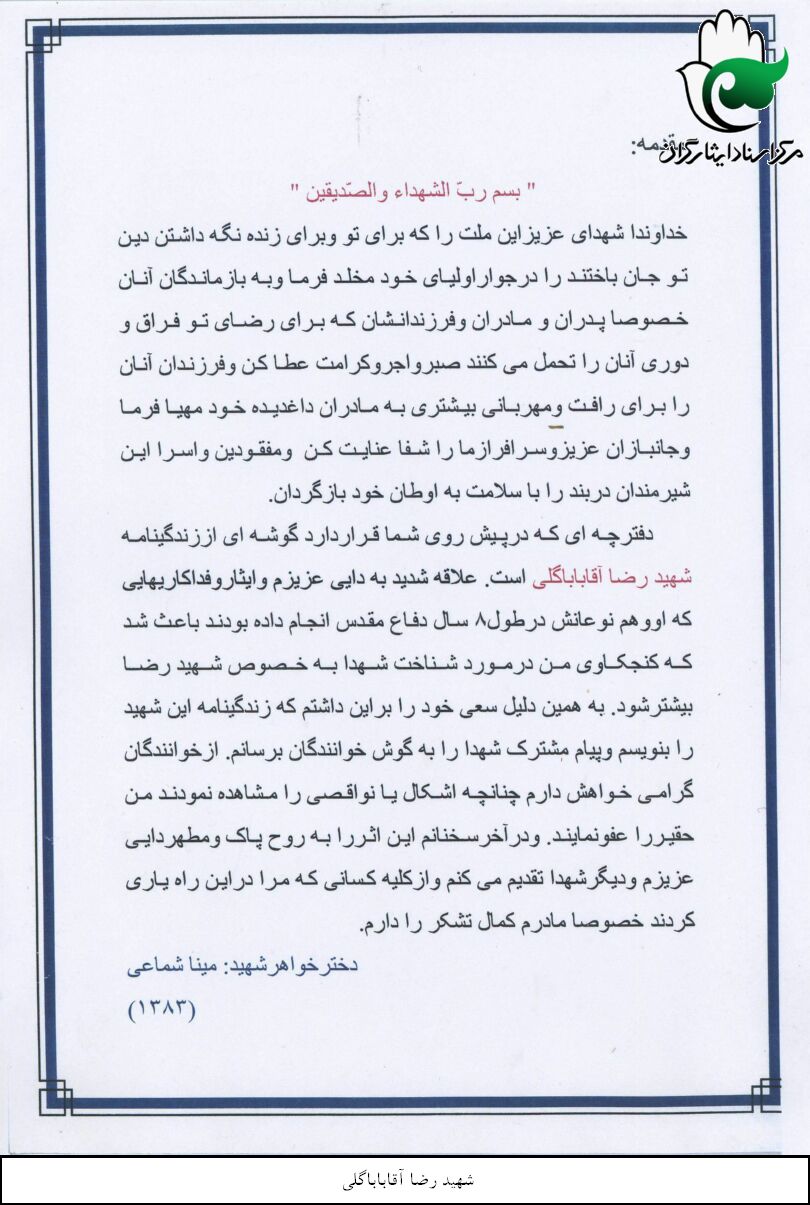 مرکز اسناد ایثارگران
مقدمه:
" بسم ربّ الشهداء والصّدیقین "
خداوندا شهدای عزیزاین ملت را که برای تو وبرای زنده نگه داشتن دین
تو جان باختند را درجواراولیای خود مخلد فرما وبه بازماندگان آنان
خصوصا پدران و مادران وفرزندانشان که برای رضای تو فراق و
دوری آنان را تحمل می کنند صبرواجروکرامت عطا کن وفرزندان آنان
را برای رافت ومهربانی بیشتری به مادران داغدیده خود مهیا فرما
وجانبازان عزیزوسرافرازما را شفا عنایت کن ومفقودین واسرا این
شیرمندان دربند را با سلامت به اوطان خود بازگردان.
دفترچه ای که درپیش روی شما قراردارد گوشه ای اززندگینامه
شهید رضا آقاباباگلی است. علاقه شدید به دایی عزیزم وایثاروفداکاریهایی
که اووهم نوعانش درطول۸ سال دفاع مقدس انجام داده بودند باعث شد
که کنجکاوی من درمورد شناخت شهدا به خصوص شهید رضا
بیشترشود. به همین دلیل سعی خود را براین داشتم که زندگینامه این شهید
را بنویسم وپیام مشترک شهدا را به گوش خوانندگان برسانم. ازخوانندگان
گرامی خواهش دارم چنانچه اشکال یا نواقصی را مشاهده نمودند من
حقیررا عفونمایند. ودرآخرسخنانم این اثررا به روح پاک ومطهردایی
عزیزم ودیگرشهدا تقدیم می کنم وازکلیه کسانی که مرا دراین راه یاری
کردند خصوصا مادرم کمال تشکر را دارم.
دخترخواهرشهید: مینا شماعی
(۱۳۸۳)
شهید رضا آقاباباگلی